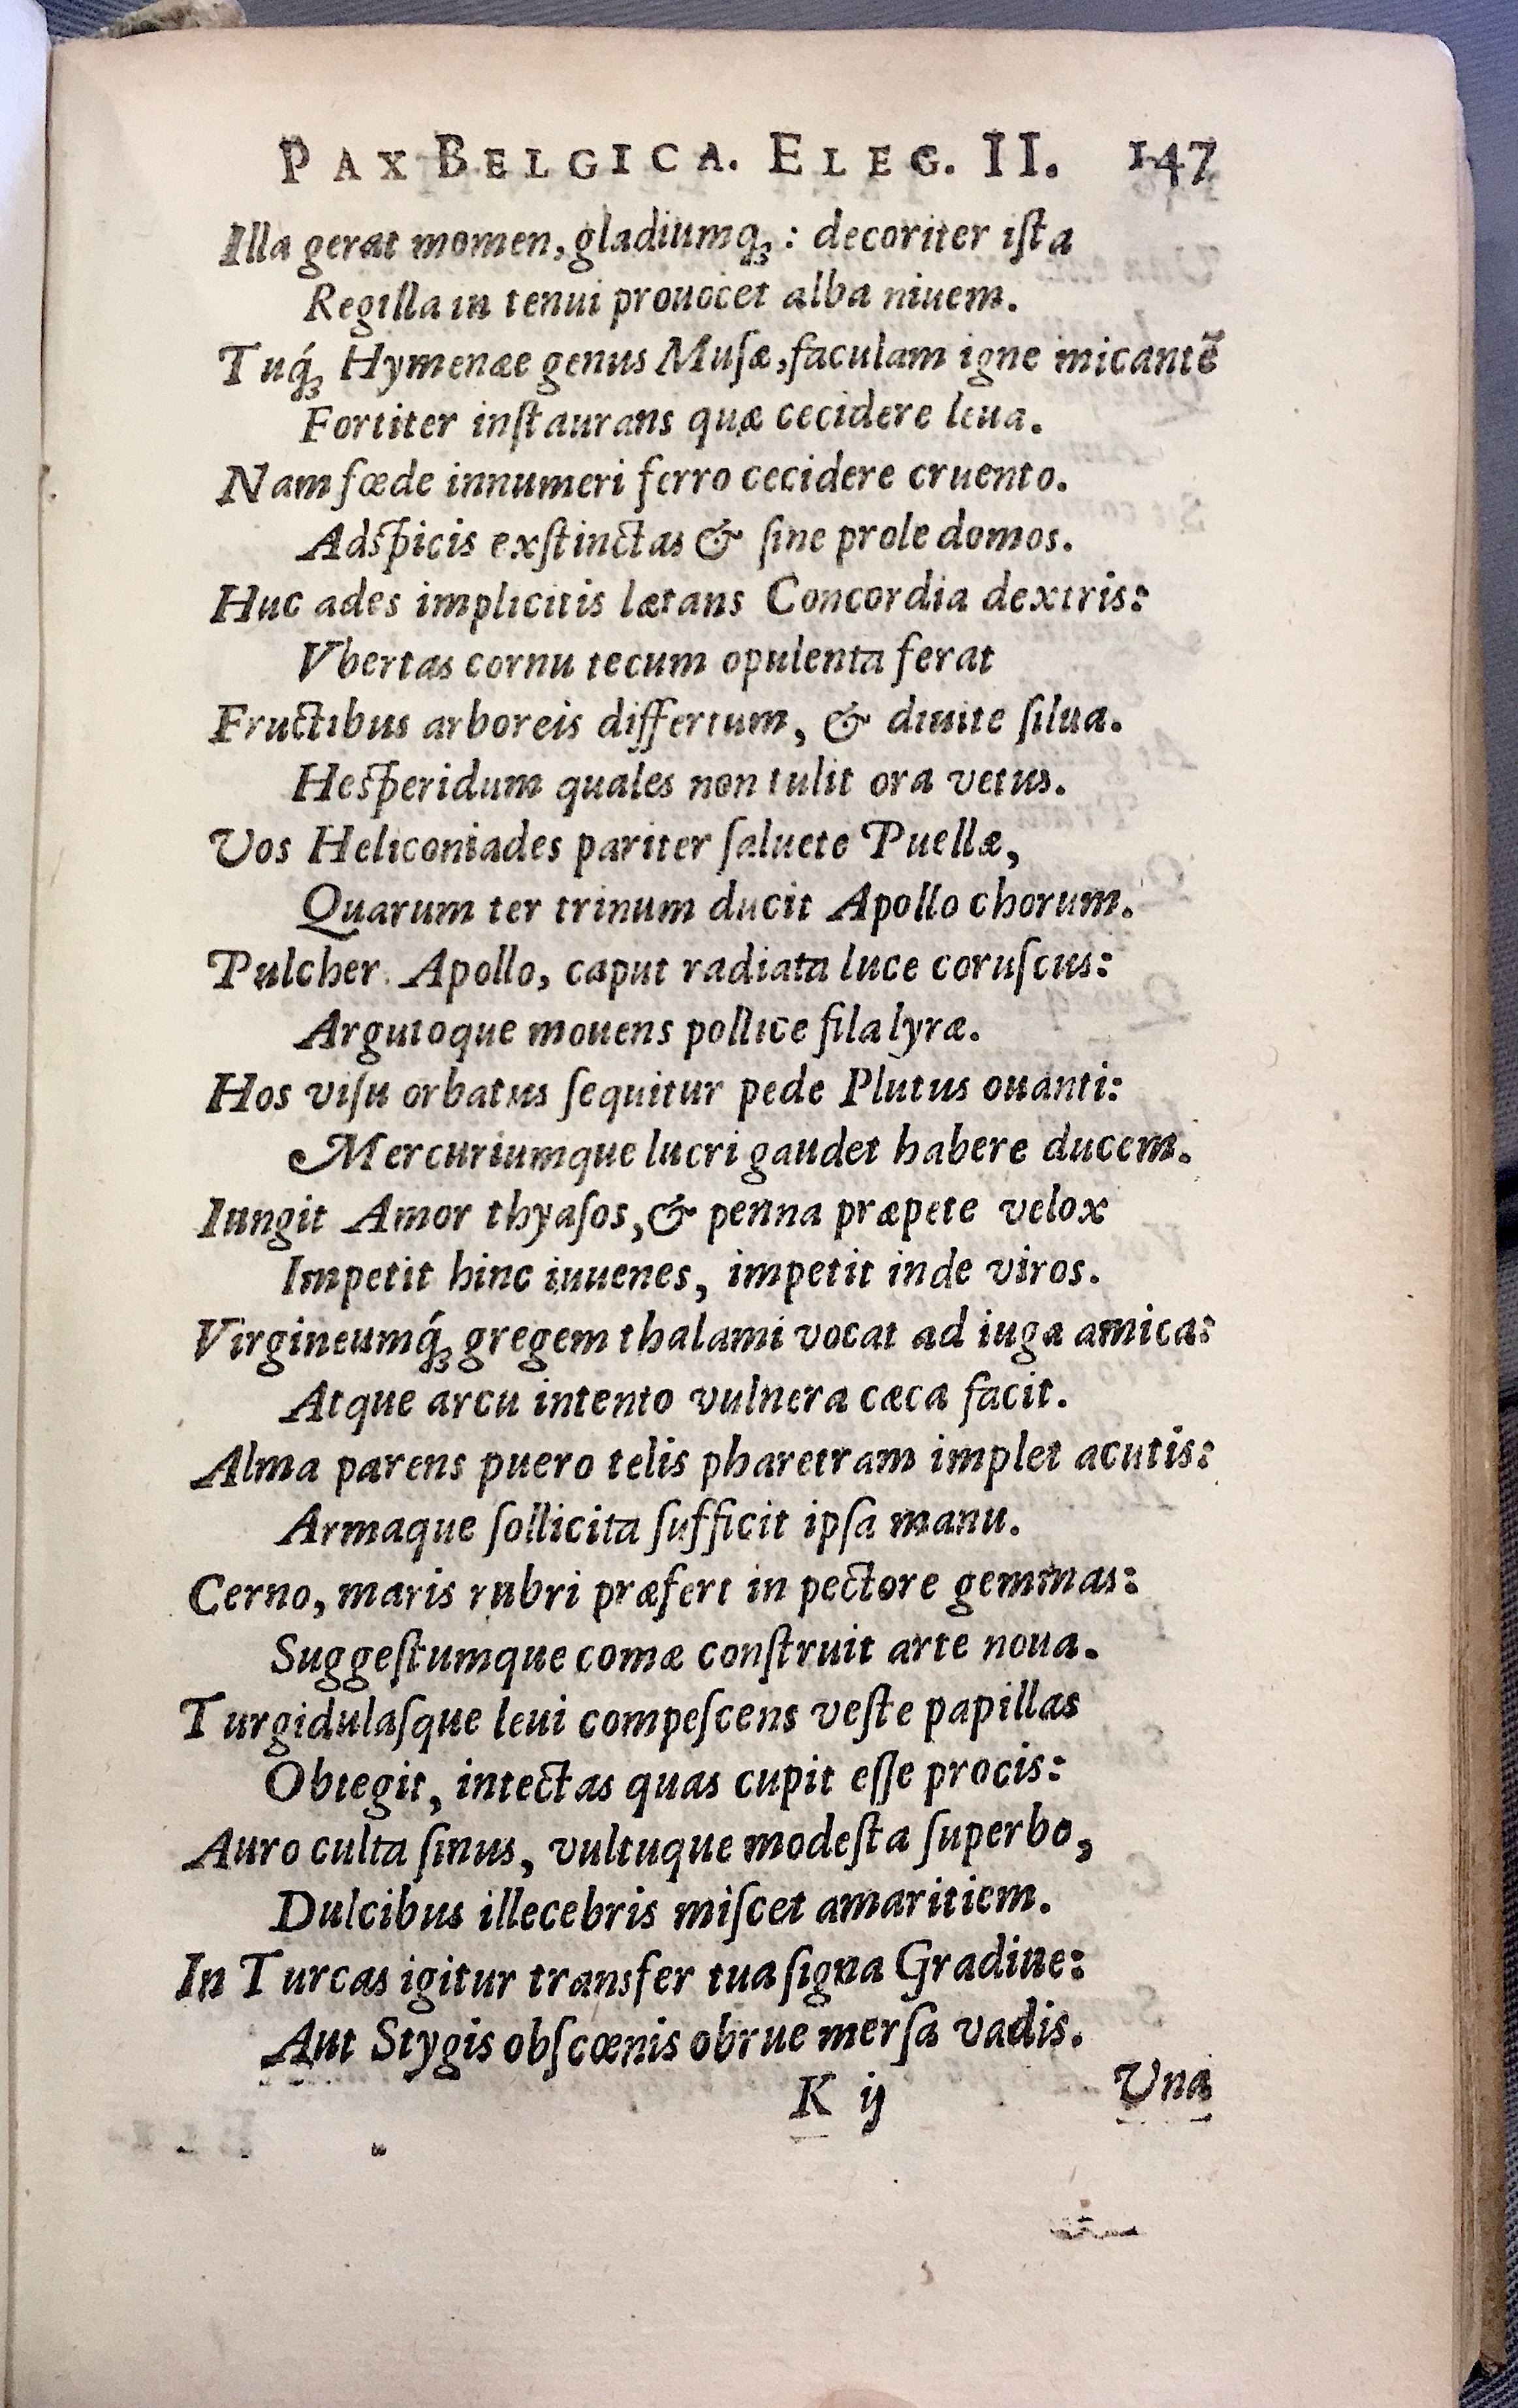 PAX BELGICA. ELEG. II. 147
Illa gerat momen, gladiumq́ꝫ: decoriter iſta
Regilla in tenui prouocet alba niuem.
Tuq́ꝫ Hymenæe genus Muſæ, faculam igne micantẽ
Fortiter inſtaurans quæ cecidere leua.
Nam fœde innumeri ferro cecidere cruento.
Adſpicis exſtinctas & ſine prole domos.
Huc ades implicitis lætans Concordia dextris:
Vbertas cornu tecum opulenta ferat
Fructibus arboreis differtum, & diuite ſilua.
Heſperidum quales non tulit ora vetus.
Vos Heliconiades pariter ſaluete Puellæ,
Quarum ter trinum ducit Apollo chorum.
Pulcher Apollo, caput radiata luce coruſcus:
Argutoque mouens pollice fila lyræ.
Hos viſu orbatus ſequitur pede Plutus ouanti:
Mercuriumque lucri gaudet habere ducem.
Iungit Amor thyaſos, & penna præpete velox
Impetit hinc iuuenes, impetit inde viros.
Virgineumq́ꝫ gregem thalami vocat ad iuga amica:
Atque arcu intento vulnera cæca facit.
Alma parens puero telis pharetram implet acutis:
Armaque ſollicita ſufficit ipſa manu.
Cerno, maris rubri præfert in pectore gemmas:
Suggeſtumque comæ conſtruit arte noua.
Turgidulaſque leui compeſcens veſte papillas
Obtegit, intectas quas cupit eſſe procis:
Auro culta ſinus, vultuque modeſta ſuperbo,
Dulcibus illecebris miſcet amaritiem.
In Turcas igitur transfer tua ſigna Gradiue:
Aut Stygis obſcœnis obrue merſa vadis.
K ij Vna